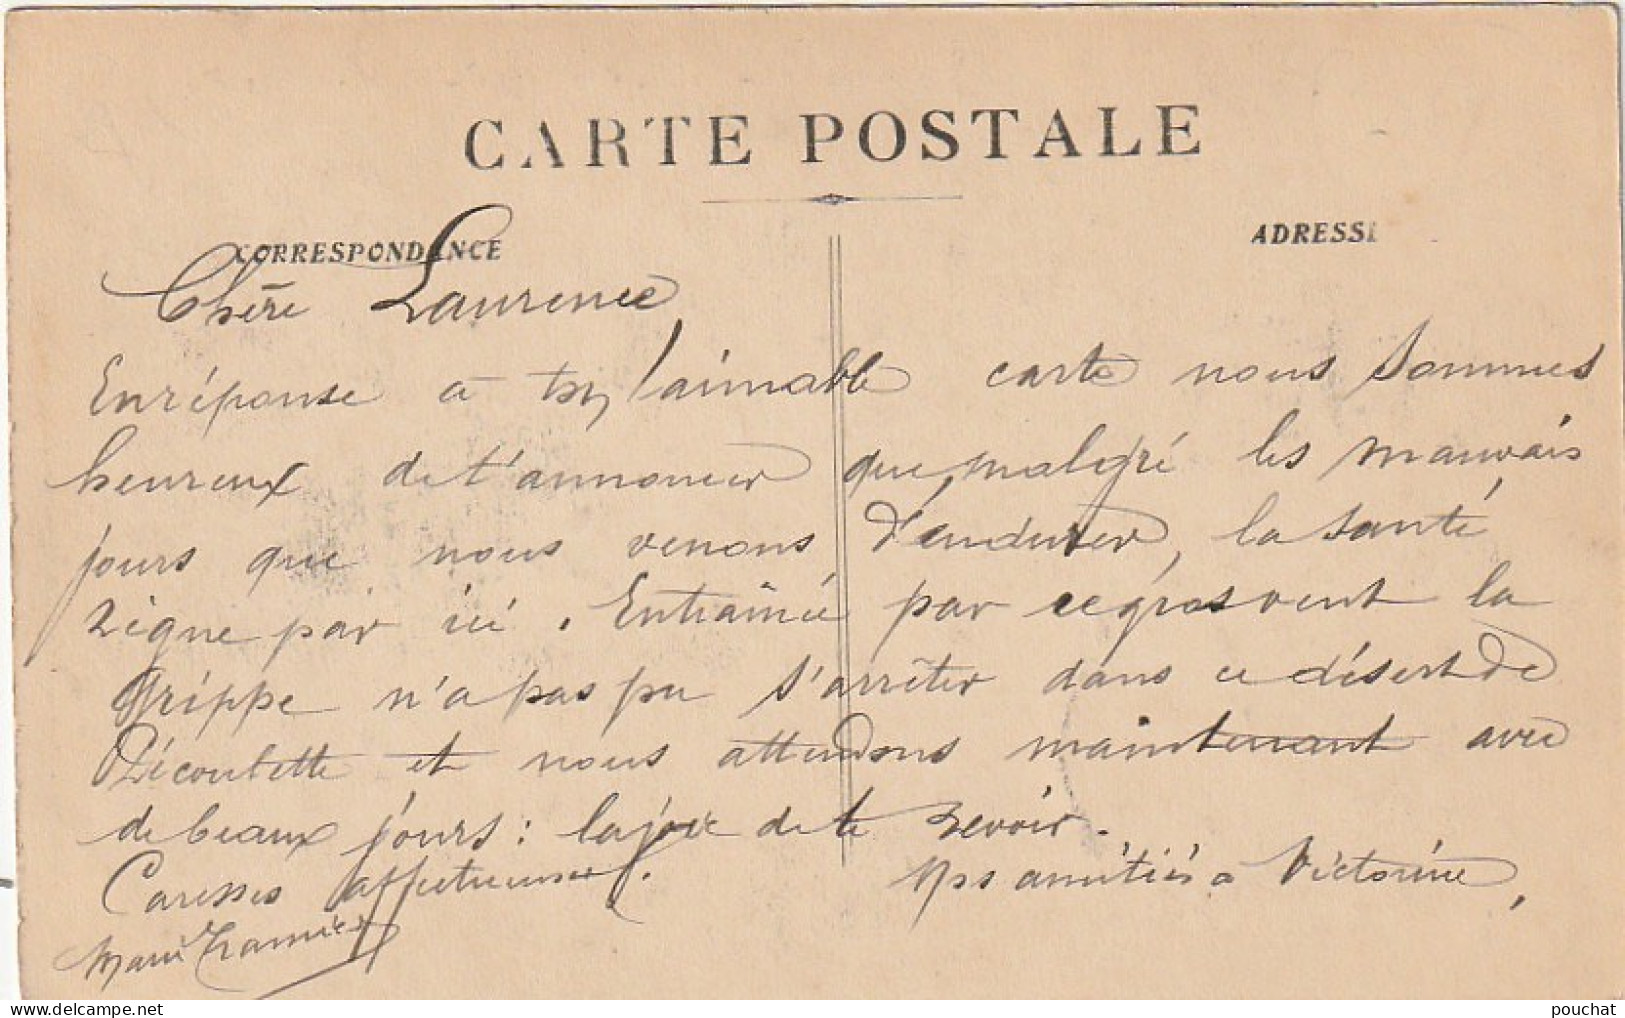 CARTE POSTALE
CORRESPONDANCE
ADRESSE
Chère Laurence
En réponse à ton aimable carte nous sommes
heureux de t'annoncer que malgré les mauvais
jours que nous venons d'endurer, la santé
règne par ici. Entrainée par ce gros vent la
Grippe n'a pas pu s'arrêter dans ce désert de
et nous attendons maintenant avec
de beaux jours : la joie de te revoir.
Caresses affectueuses.
Nos amitiés à Victorine,
Marie
pouchat